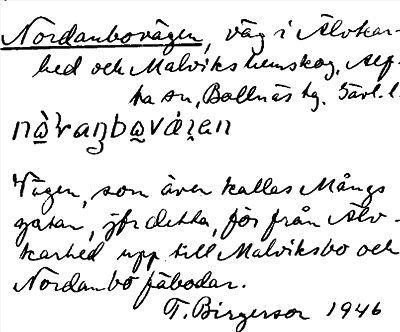 Nordanbovägen, väg i Älvkar-
hed och Malviks hemskog, Alf-
ta sn, Bollnäs tg. Gävl. l.
Vägen, som även kallas Mångs
gatan, jfr detta, för från Älv-
karhed upp till Malviksbo och
Nordanbo fäbodar.
T. Birgersor 1946